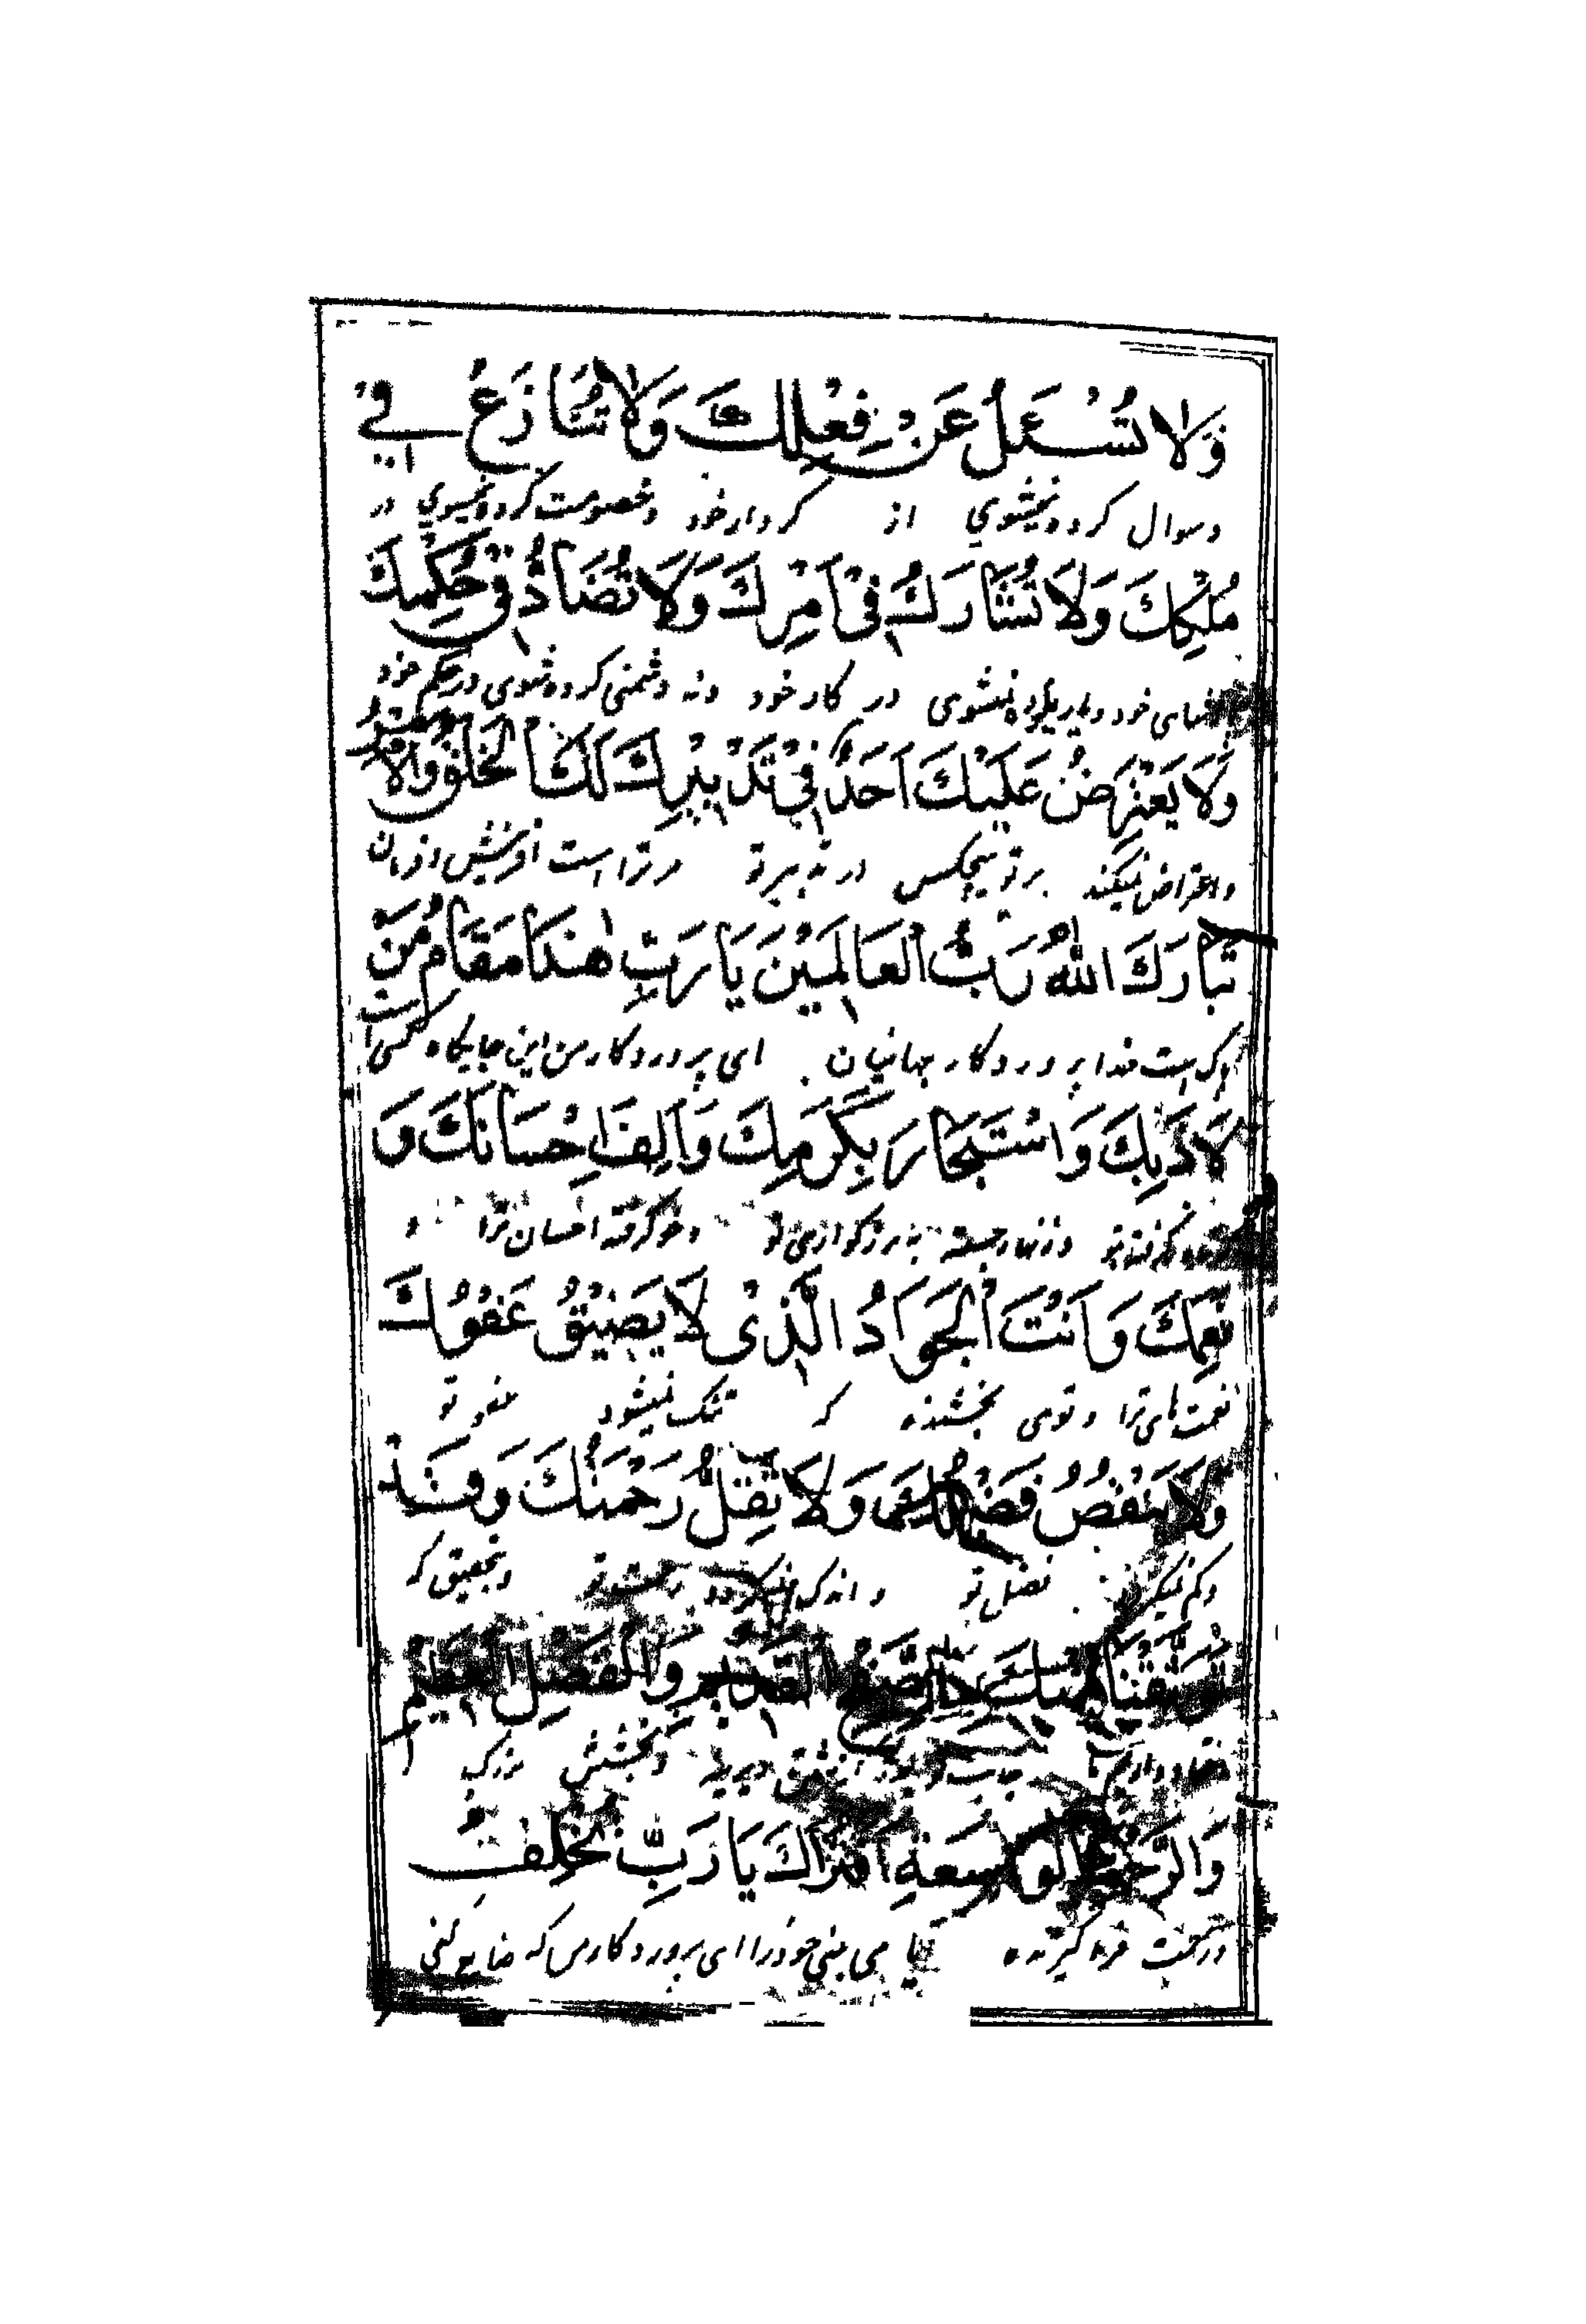 وَلَا تُسْئَلُ عَنْ فِعْلِكَ وَلَا تُنَازَعُ فِي
وسوال کرده نمیشوي از کردار خود وخصومت کرده نمیشوي در
مُلْكِكَ وَلَا تُشَارَكُ فِي اَمْرِكَ وَلَا تُضَادُّ فِي حُكْمِكَ
خود نمیشوی در کار خود ونه دشمنی کرده شوی در حکم خود
وَلَا يَعْتَرِضُ عَلَيْكَ اَحَدٌ فِي تَدْبِيرِكَ لَكَ الْخَلْقُ وَالْاَمْرُ
واعتراض نمیکند بر تو هیچکس در تدبیر تو مر تراست افرینش و فرمان
تَبَارَكَ اللّٰهُ رَبُّ الْعَالَمِيْنَ يَا رَبِّ هٰذَا مَقَامُ مَنْ
است خدا پروردکار جهانیان ای پروردکار من این جایکاه کسی است
لَاذَبِكَ وَاسْتَجَارَ بِكَرَمِكَ وَاَلِفَ اِحْسَانَكَ وَ
وزنهار جسته وخو کرفته احسان ترا و
نِعَمَكَ وَاَنْتَ الْجَوَادُ الَّذِي لَا يَضِيْقُ عَفْوُكَ
نعمت های ترا و توی بخشنده که تنک نمیشود عفو تو
وَلَا يَنْقُصُ فَضْلُكَ وَلَا تَقِلُّ رَحْمَتُكَ وَقَدْ
وکم فضل تو و اندک رحمت تو وبتحقیق که
تَوَثَّقْنَا مِنْكَ بِالصَّفْحِ الْقَدِيْمِ وَالْفَضْلِ الْعَظِيْمِ
وبخشش بزرک
وَالرَّحْمَةِ الْوَاسِعَةِ اَفَتَرَاكَ يَا رَبِّ تُخْلِفُ
ورحمت فراکیرنده آیا می بینی خود را ای پروردکار من که ضایع کنی